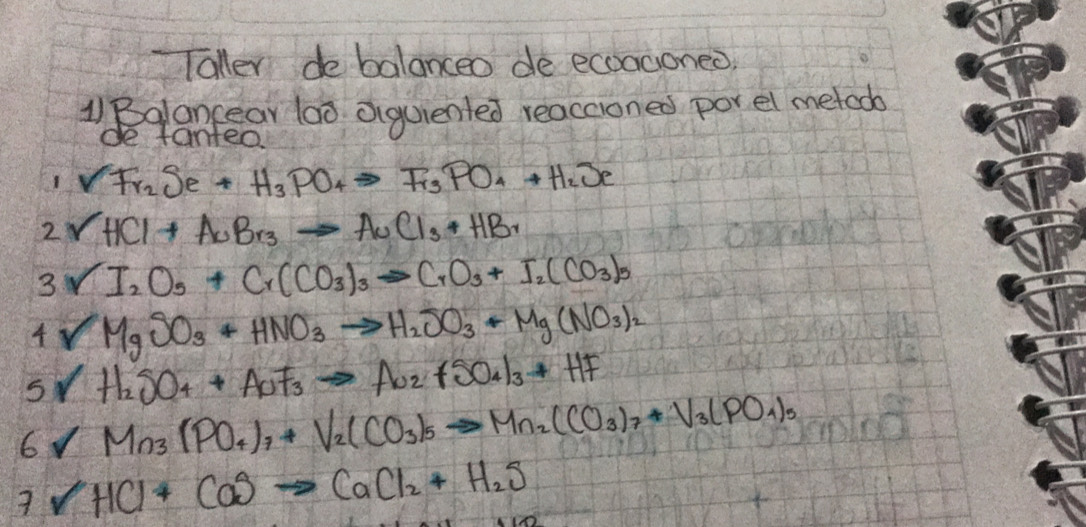 Taller de balanceo de ecuaciones.
1) Balancear las siguientes reacciones por el metodo
de tanteo.
1 ✓ Fr₂Se + H₃PO₄ → Fr₃PO₄ + H₂Se
2 ✓ HCl + AuBr₃ → AuCl₃ + HBr
3 ✓ I₂O₅ + Cr(CO₃)₃ → CrO₃ + I₂(CO₃)₅
4 ✓ MgSO₃ + HNO₃ → H₂SO₃ + Mg(NO₃)₂
5 ✓ H₂SO₄ + AuF₃ → Au₂(SO₄)₃ + HF
6 ✓ Mn₃(PO₄)₇ + V₂(CO₃)₅ → Mn₂(CO₃)₇ + V₃(PO₄)₅
7 ✓ HCl + CaS → CaCl₂ + H₂S